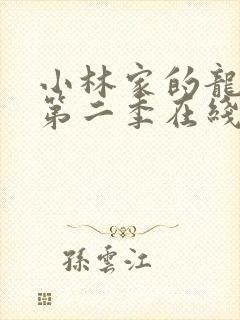 小林家的龍
第二季在綫
孫雲江